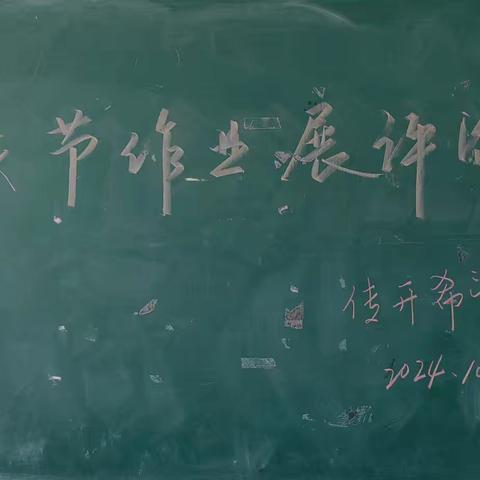 节作业展许
传开希
2024.10